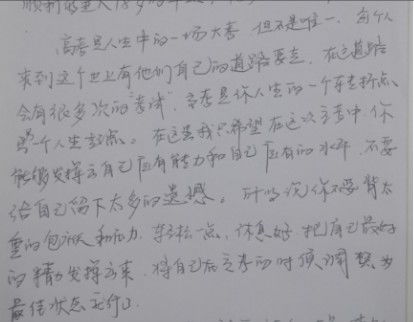 顺利的
高考是人生中的一场大考 但不是唯一,每个人
来到这个世上有他们自己的道路要走,在这道路
会有很多次的"考试",高考是你人生的一个转折点
第一个人生起点。在这里我只希望在这次高考中,你
能够发挥出自己应有能力和自己应有的水平,不要
给自己留下太多的遗憾。所以说你不要背太
重的包袱和压力,轻松一点,休息好,把自己最好
的精力发挥出来,将自己在高考的时候调整为
最佳状态就行了